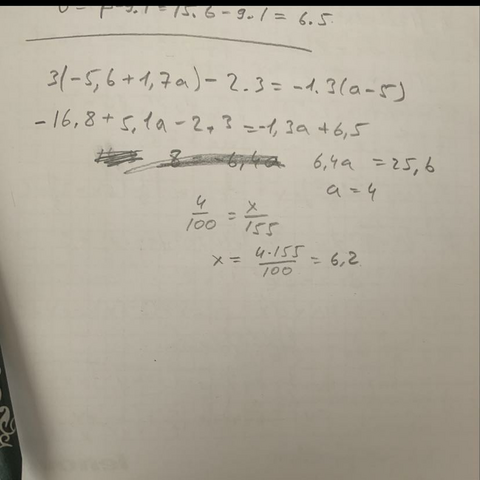 = 15.6 - 9.1 = 6.5
3(-5,6+1,7a) - 2.3 = -1.3(a-5)
-16,8+5,1a-2,3=-1,3a+6,5
6,4a = 25,6
a = 4
4/100 = x/155
x = 4·155/100 = 6,2